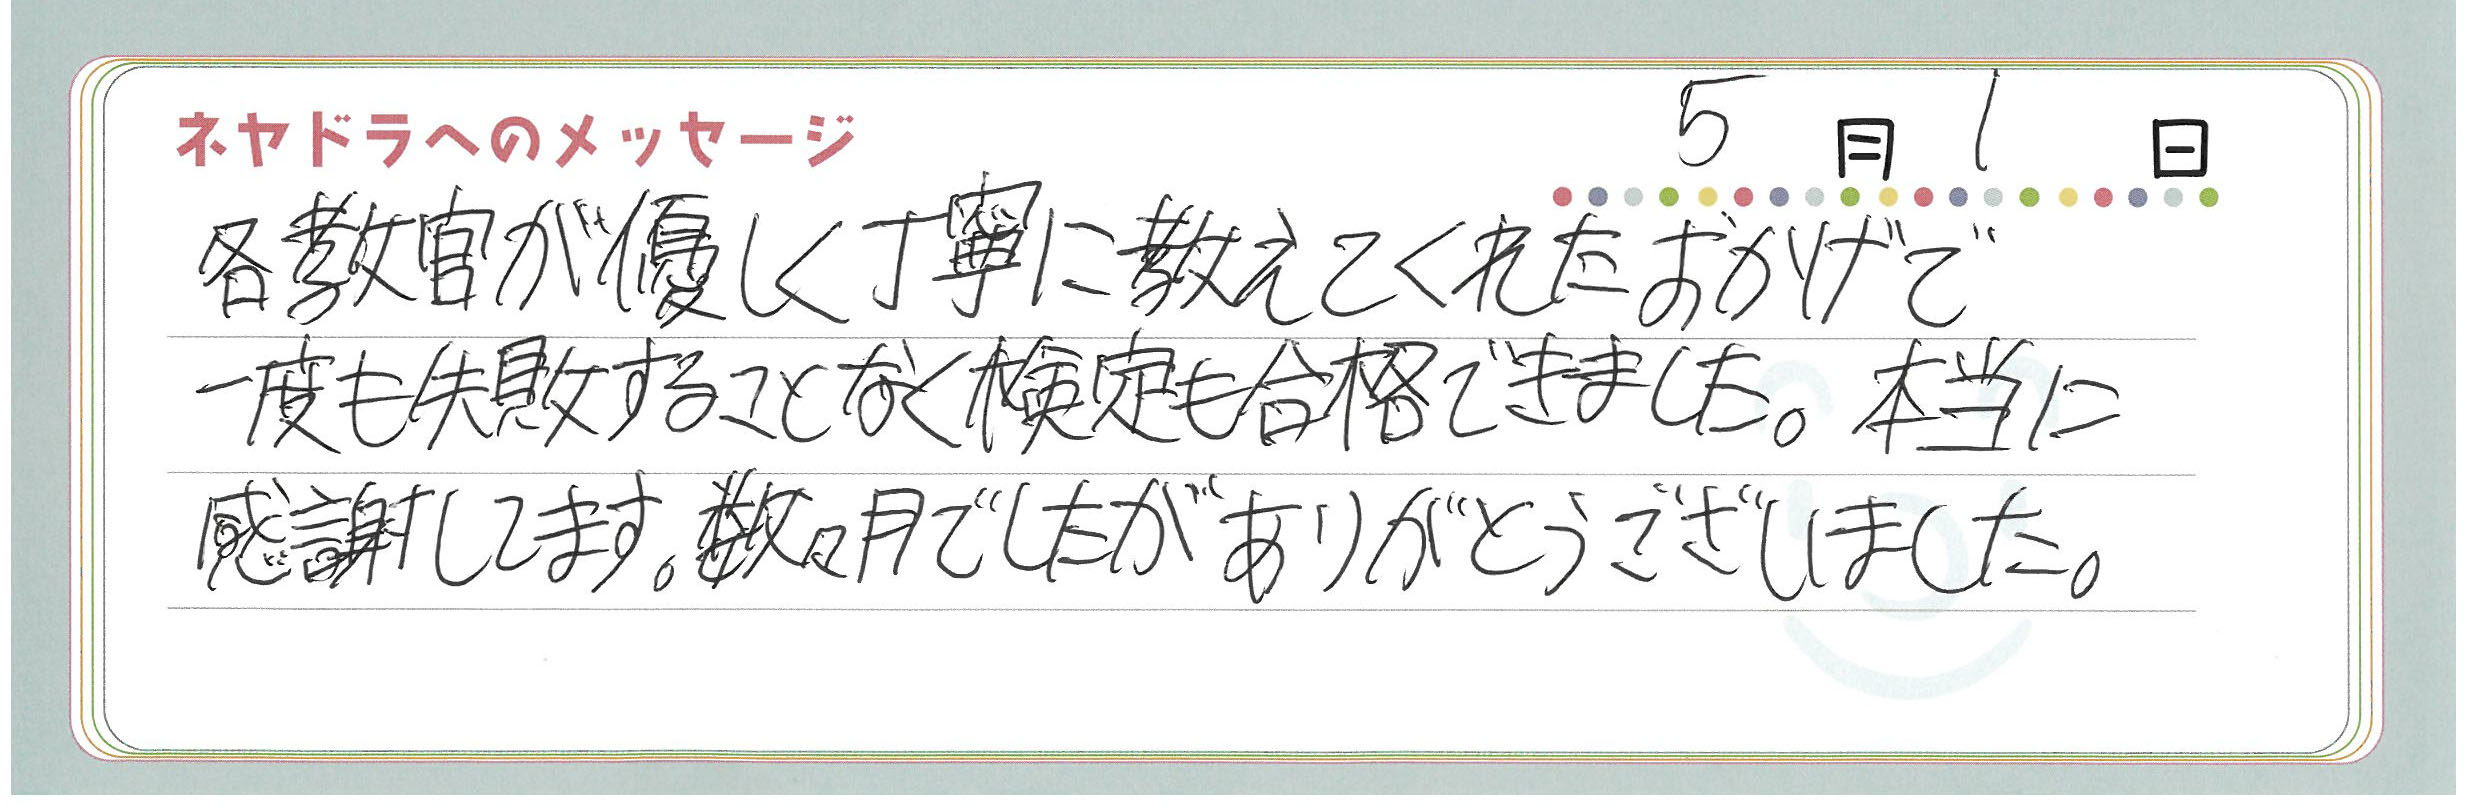 ネヤドラへのメッセージ
5月1日
各教官が優しく丁寧に教えてくれたおかげで
一度も失敗することなく検定も合格できました。本当に
感謝してます。数々月でしたがありがとうございました。